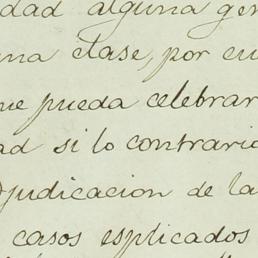 dad alguna gen
una clase, por cu
ue pueda celebrar
ad si lo contrario
djudicacion de la
casos esplicados